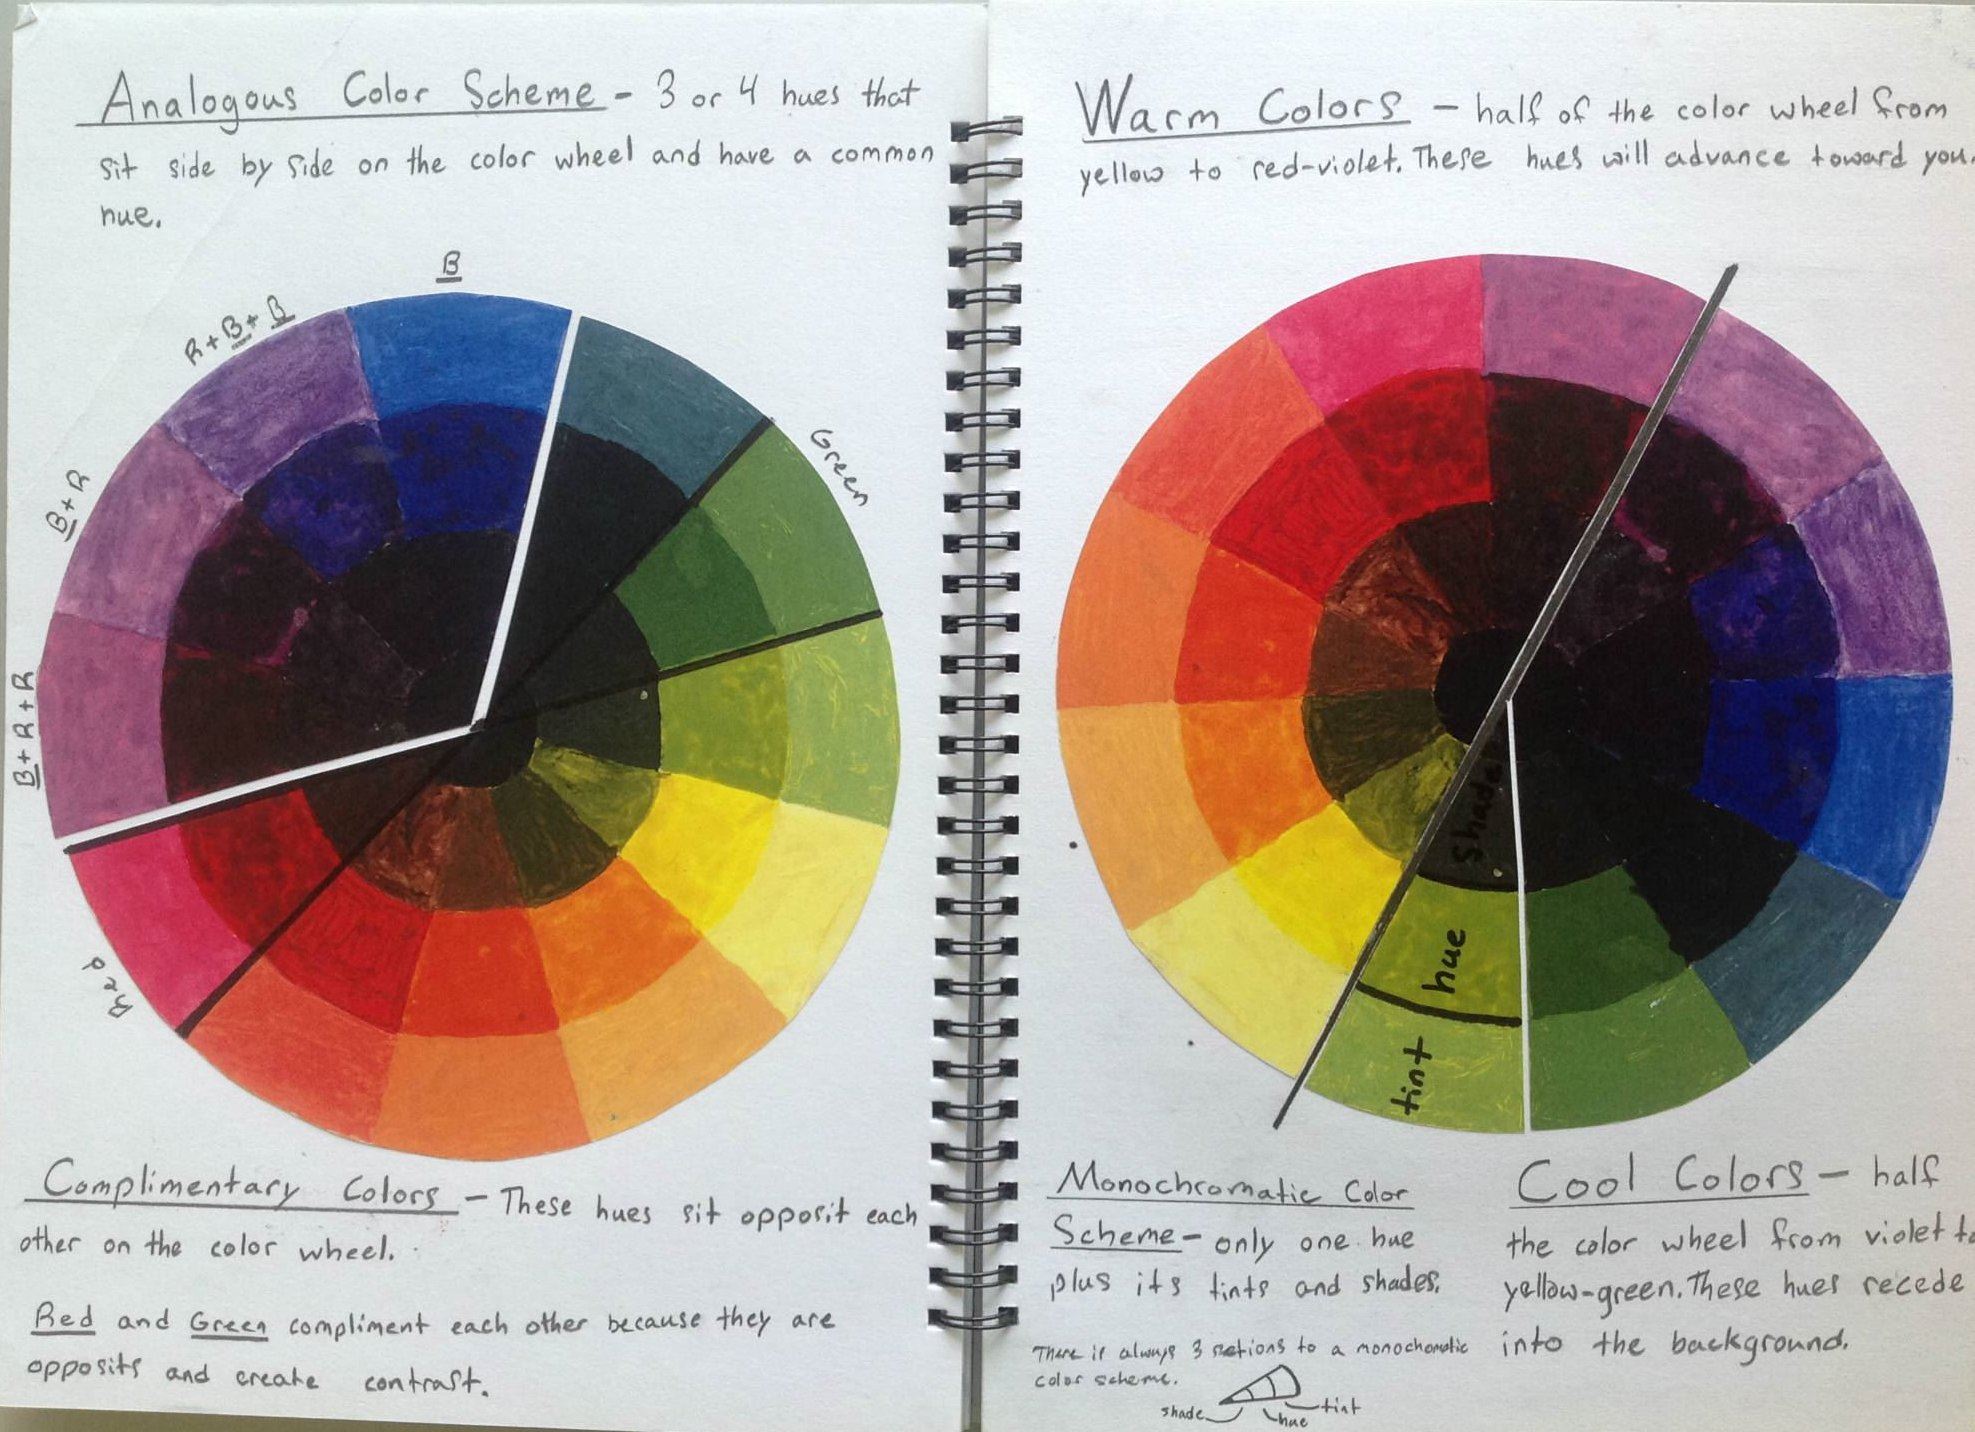 Analogous Color Scheme - 3 or 4 hues that
sit side by side on the color wheel and have a common
hue.
B
R+B+B
B+R
B+R+R
Green
Red
Complimentary Colors - These hues sit opposit each
other on the color wheel.
Red and Green compliment each other because they are
opposits and create contrast.
Warm Colors - half of the color wheel from
yellow to red-violet. These hues will advance toward you.
shade
hue
tint
Monochromatic Color
Scheme - only one hue
plus its tints and shades.
There is always 3 sections to a monochomatic
color scheme.
shade
hue
tint
Cool Colors - half
the color wheel from violet to
yellow-green. These hues recede
into the background.